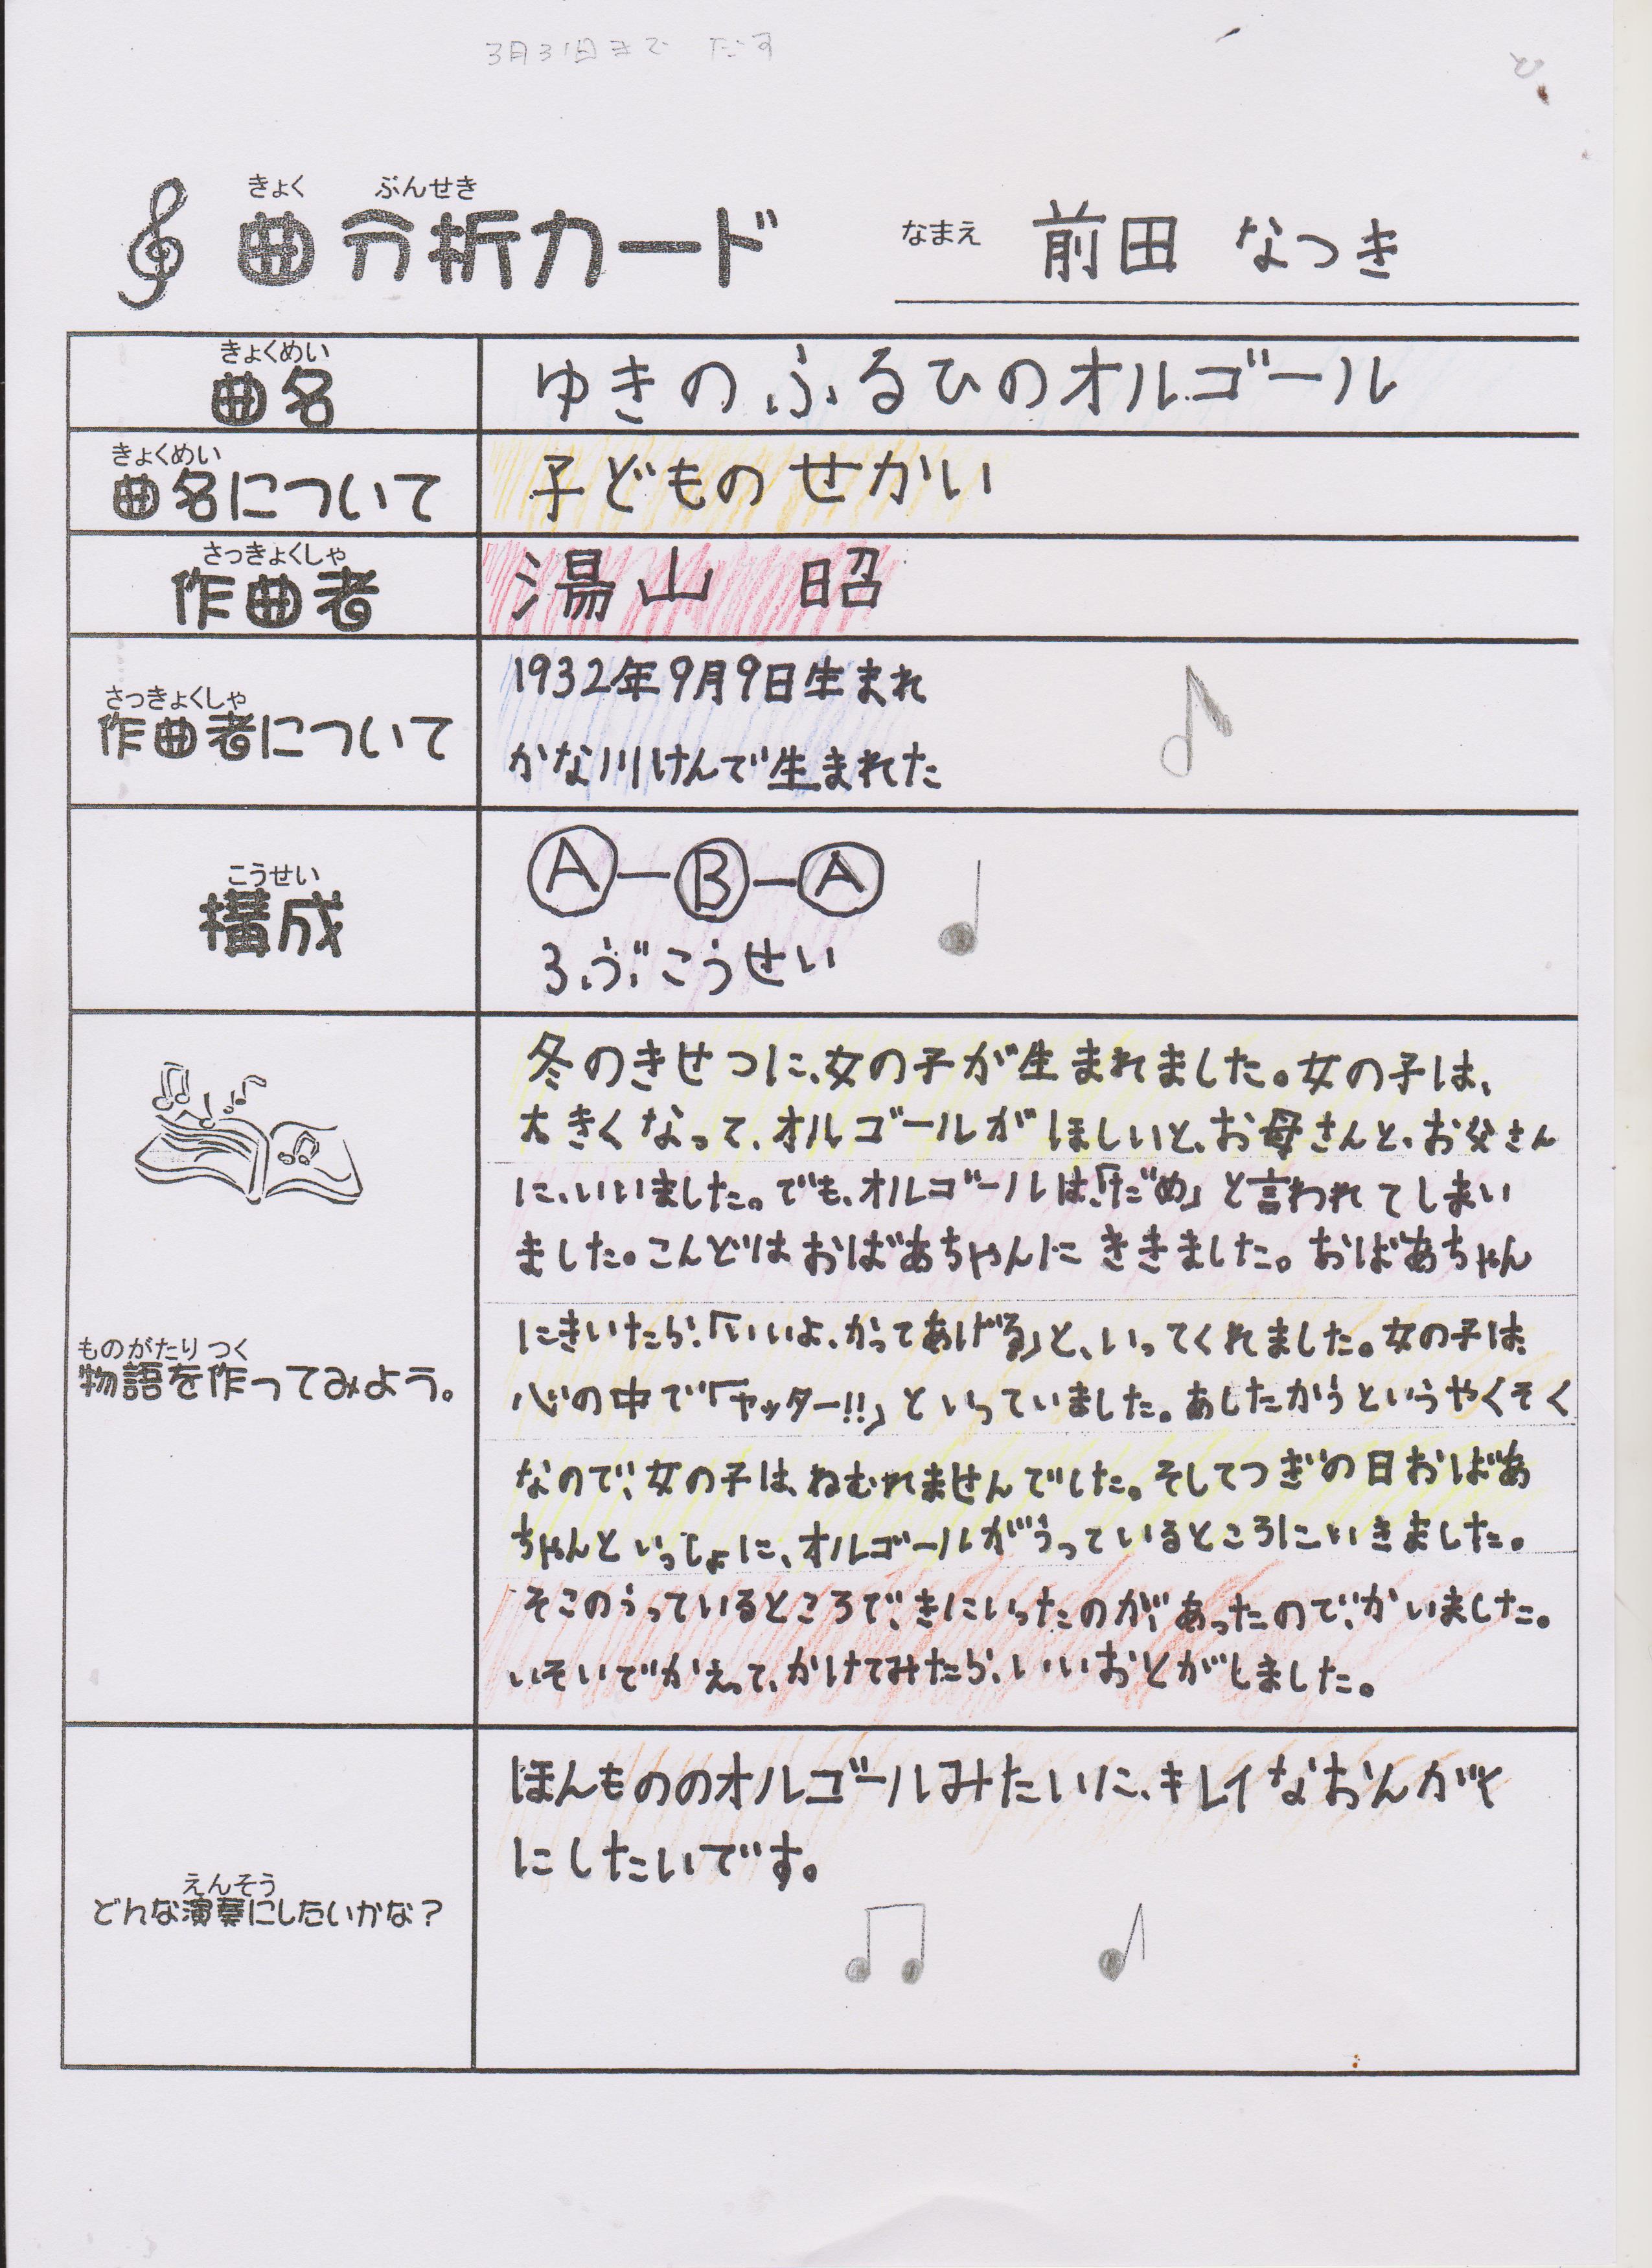 3月31日まで だす
と
きょく ぶんせき
曲分析カード
なまえ 前田 なつき
きょくめい
曲名
ゆきのふるひのオルゴール
きょくめい
曲名について
子どものせかい
さっきょくしゃ
作曲者
湯山 昭
さっきょくしゃ
作曲者について
1932年9月9日生まれ
かな川けんで生まれた
こうせい
構成
A-B-A
3ぶこうせい
ものがたり つく
物語を作ってみよう。
冬のきせつに、女の子が生まれました。女の子は、
大きくなって、オルゴールがほしいと、お母さんと、お父さん
に、いいました。でも、オルゴールは、「だめ」と言われてしまい
ました。こんどはおばあちゃんにききました。おばあちゃん
にきいたら、「いいよ、かってあげる」と、いってくれました。女の子は、
心の中で「ヤッター!!」といっていました。あしたかうというやくそく
なので、女の子は、ねむれませんでした。そしてつぎの日おばあ
ちゃんといっしょに、オルゴールがうっているところにいきました。
そこのうっているところで、きにいったのが、あったので、かいました。
いそいでかえって、かけてみたら、いいおとがしました。
えんそう
どんな演奏にしたいかな？
ほんもののオルゴールみたいに、キレイなおんがく
にしたいです。